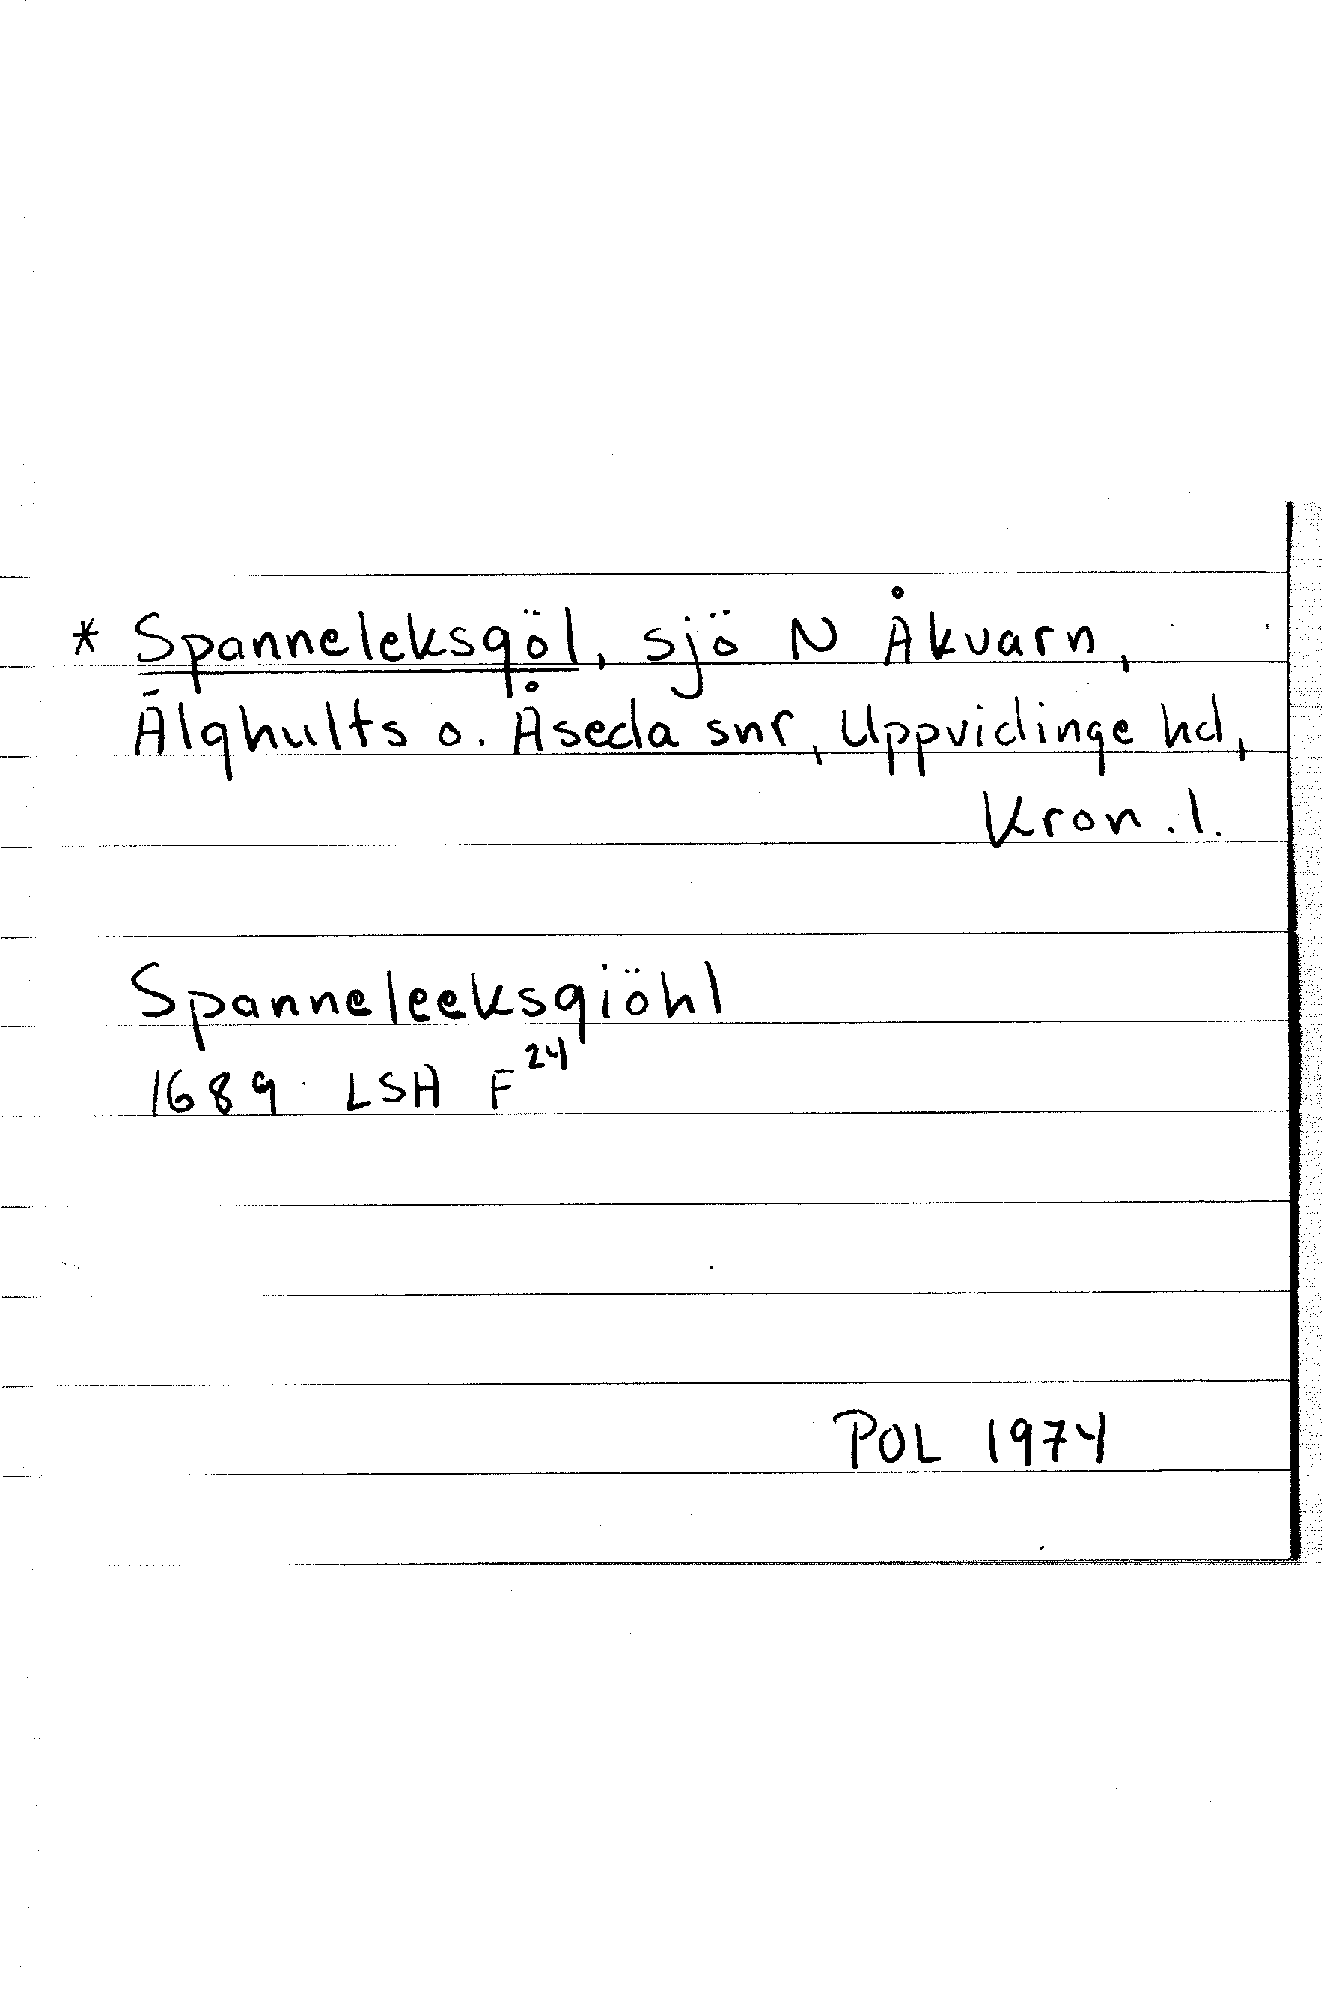 * Spanneleksgöl, sjö N Åkvarn,
Älghults o. Åseda snr, Uppvidinge hd,
Kron. l.
Spanneleeksgiöhl
1689 LSA F 24
POL 1974